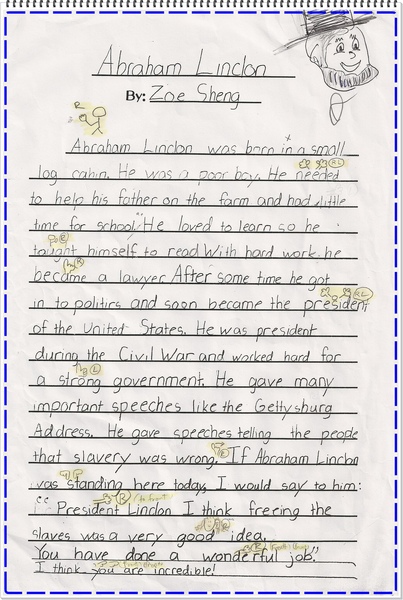 Abraham Linclon
By: Zoe Sheng
Abraham Linclon was born in a small
log cabin. He was a poor boy. He needed
to help his father on the farm and had little
time for school. He loved to learn so he
taught himself to read With hard work, he
became a lawyer After some time he got
in to politics and soon became the president
of the United States. He was president
during the Civil War and worked hard for
a strong government. He gave many
important speeches like the Gettysburg
Address. He gave speeches telling the people
that slavery was wrong. If Abraham Linclon
was standing here today, I would say to him:
"President Linclon I think freeing the
slaves was a very good idea.
You have done a wonderful job."
I think you are incredible!